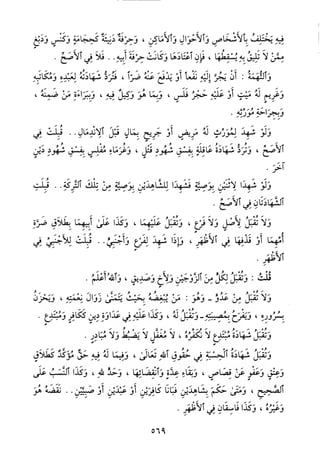 فِيهِ يَخْتَلِفُ بِٱلْأَشْخَاصِ وَٱلْأَحْوَالِ وَٱلْأَمَاكِنِ ، وَحِرْفَةٌ دَنِيئَةٌ كَحِجَامَةٍ وَكَنْسٍ وَدَبْغٍ
مِمَّنْ لَا تَلِيقُ بِهِ يُسْقِطُهَا ، فَإِنِ ٱعْتَادَهَا وَكَانَتْ حِرْفَةَ أَبِيهِ . . فَلَا فِي ٱلْأَصَحِّ .
وَٱلتُّهَمَةُ : أَنْ يَجُرَّ إِلَيْهِ نَفْعاً أَوْ يَدْفَعَ عَنْهُ ضَرَراً ، فَتُرَدُّ شَهَادَتُهُ لِعَبْدِهِ وَمُكَاتَبِهِ
وَغَرِيمٍ لَهُ مَيْتٍ أَوْ عَلَيْهِ حَجْرُ فَلَسٍ ، وَبِمَا هُوَ وَكِيلٌ فِيهِ ، وَبِبَرَاءَةِ مَنْ ضَمِنَهُ ،
وَبِجِرَاحَةِ مُوَرِّثِهِ .
وَلَوْ شَهِدَ لِمُوَرِّثٍ لَهُ مَرِيضٍ أَوْ جَرِيحٍ بِمَالٍ قَبْلَ ٱلِانْدِمَالِ . . قُبِلَتْ فِي
ٱلْأَصَحِّ ، وَتُرَدُّ شَهَادَةُ عَاقِلَةٍ بِفِسْقِ شُهُودِ قَتْلٍ ، وَغُرَمَاءِ مُفْلِسٍ بِفِسْقِ شُهُودِ دَيْنٍ
آخَرَ .
وَلَوْ شَهِدَا لِاثْنَيْنِ بِوَصِيَّةٍ فَشَهِدَا لِلشَّاهِدَيْنِ بِوَصِيَّةٍ مِنْ تِلْكَ ٱلتَّرِكَةِ . . قُبِلَتِ
ٱلشَّهَادَتَانِ فِي ٱلْأَصَحِّ .
وَلَا تُقْبَلُ لِأَصْلٍ وَلَا فَرْعٍ ، وَتُقْبَلُ عَلَيْهِمَا ، وَكَذَا عَلَىٰ أَبِيهِمَا بِطَلَاقِ ضَرَّةِ
أُمِّهِمَا أَوْ قَذْفِهَا فِي ٱلْأَظْهَرِ ، وَإِذَا شَهِدَ لِفَرْعٍ وَأَجْنَبِيٍّ . . قُبِلَتْ لِلْأَجْنَبِيِّ فِي
ٱلْأَظْهَرِ .
قُلْتُ : وَتُقْبَلُ لِكُلٍّ مِنَ ٱلزَّوْجَيْنِ وَلِأَخٍ وَصَدِيقٍ ، وَٱللهُ أَعْلَمُ .
وَلَا تُقْبَلُ مِنْ عَدُوٍّ - وَهُوَ : مَنْ يُبْغِضُهُ بِحَيْثُ يَتَمَنَّىٰ زَوَالَ نِعْمَتِهِ ، وَيَحْزَنُ
بِسُرُورِهِ ، وَيَفْرَحُ بِمُصِيبَتِهِ - وَتُقْبَلُ لَهُ ، وَكَذَا عَلَيْهِ فِي عَدَاوَةِ دِينٍ كَكَافِرٍ وَمُبْتَدِعٍ .
وَتُقْبَلُ شَهَادَةُ مُبْتَدِعٍ لَا نُكَفِّرُهُ ، لَا مُغَفَّلٍ لَا يَضْبِطُ وَلَا مُبَادِرٍ .
وَتُقْبَلُ شَهَادَةُ ٱلْحِسْبَةِ فِي حُقُوقِ ٱللهِ تَعَالَىٰ ، وَفِيمَا لَهُ فِيهِ حَقٌّ مُؤَكَّدٌ كَطَلَاقٍ
وَعِتْقٍ وَعَفْوٍ عَنْ قِصَاصٍ ، وَبَقَاءِ عِدَّةٍ وَٱنْقِضَائِهَا ، وَحَدٍّ لِلهِ ، وَكَذَا ٱلنَّسَبُ عَلَى
ٱلصَّحِيحِ ، وَمَتَىٰ حَكَمَ بِشَاهِدَيْنِ فَبَانَا كَافِرَيْنِ أَوْ عَبْدَيْنِ أَوْ صَبِيَّيْنِ . . نَقَضَهُ هُوَ
وَغَيْرُهُ ، وَكَذَا فَاسِقَانِ فِي ٱلْأَظْهَرِ .
٥٦٩